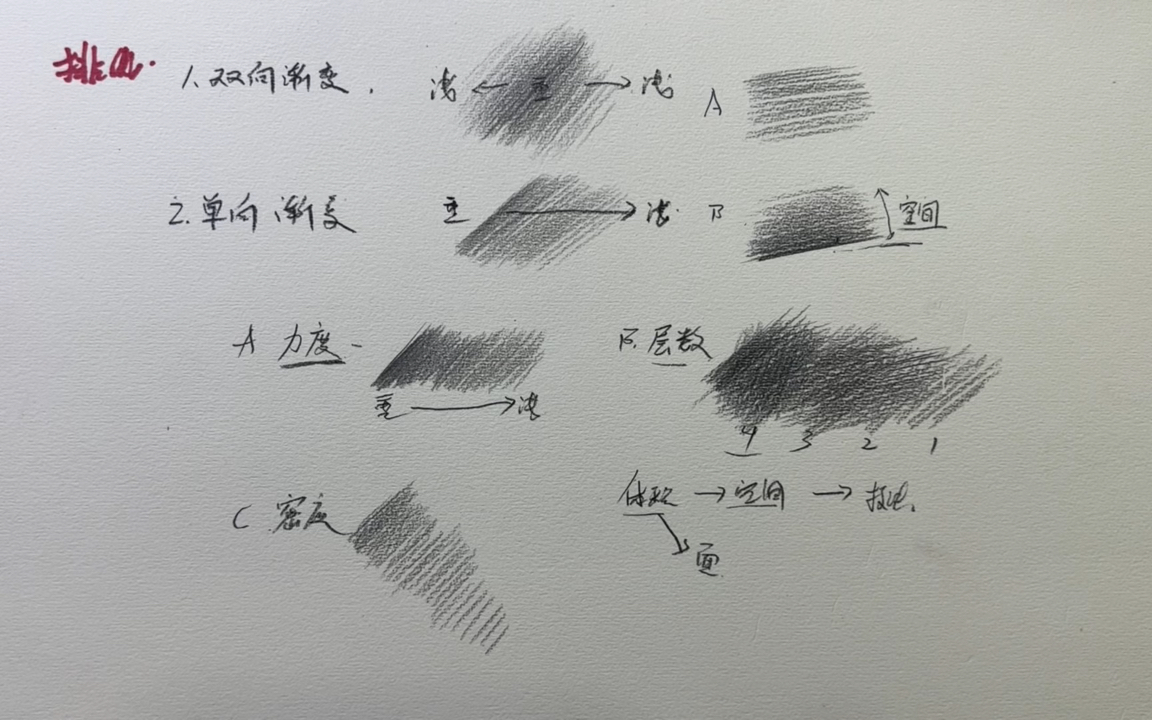 排线.
1.双向渐变.
浅 ← 重 → 浅
A
2.单向渐变
重 → 浅
B
空间
A 力度-
重 → 浅
B.层数
4 3 2 1
C 密度
体积 → 空间 →
面